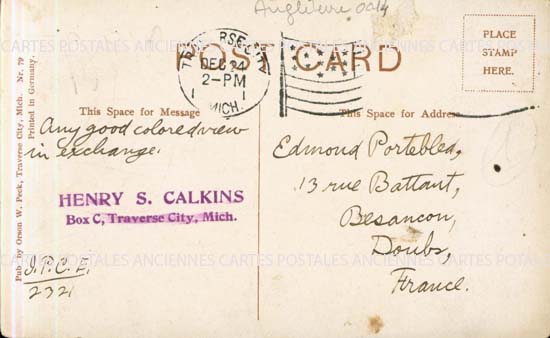 Angleterre 0214
POST CARD
TRAVERSE CITY
DEC 24
2-PM
MICH.
PLACE
STAMP
HERE.
This Space for Message
This Space for Address
Any good colored view
in exchange.
HENRY S. CALKINS
Box C, Traverse City, Mich.
I.P.C.E.
2321
Edmond Portebled,
13 rue Battant,
Besancon,
Doubs,
France.
Pub. by Orson W. Peck, Traverse City, Mich. Nr. 79
Printed in Germany.
CARTES POSTALES ANCIENNES CARTES POSTALES ANCIENNES